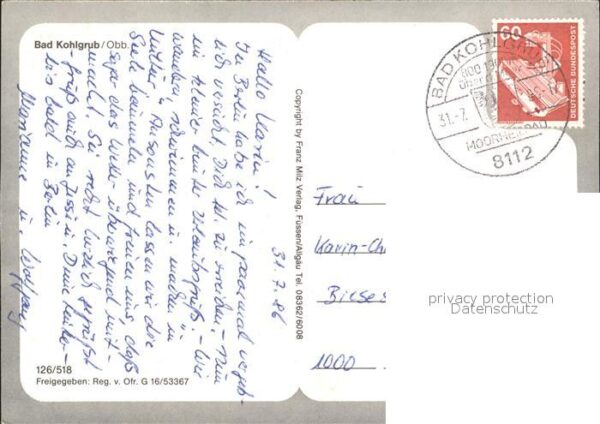 Bad Kohlgrub/Obb.
31.7.86
Hallo Karin!
In Berlin habe ich ein paarmal vergeb-
lich versucht, Dich tel. zu erreichen. - Nun
ein kleiner bunter Urlaubsgruß. - Wir
wandern, schwimmen u. waden in
Ansonsten lassen wir die
Seele baumeln und freuen uns, daß
sogar das Wetter überwiegend mit-
macht. Sei recht herzlich gegrüßt
- Gruß auch an u. Deine
bis bald in Berlin
Marianne u. Wolfgang
126/518
Freigegeben: Reg. v. Obr. G 16/53367
Copyright by Franz Milz Verlag, Füssen/Allgäu Tel. 08362/6008
60
DEUTSCHE BUNDESPOST
BAD KOHLGRUB
31.-7.
MOORHEILBAD
8112
Frau
Karin-Ch
Bieses
1000
privacy protection
Datenschutz